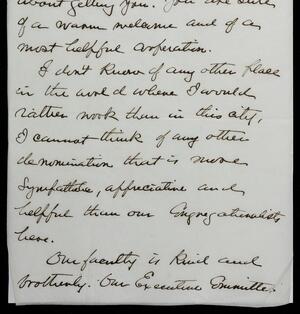 about getting you. You are sure
of a warm welcome and of a
most helpful cooperation.
I don't know of any other place
in the world where I would
rather work than in this city,
I cannot think of any other
denomination that is more
sympathetic, appreciative and
helpful than our Congregationalists
here.
Our faculty is kind and
brotherly. Our Executive Committee